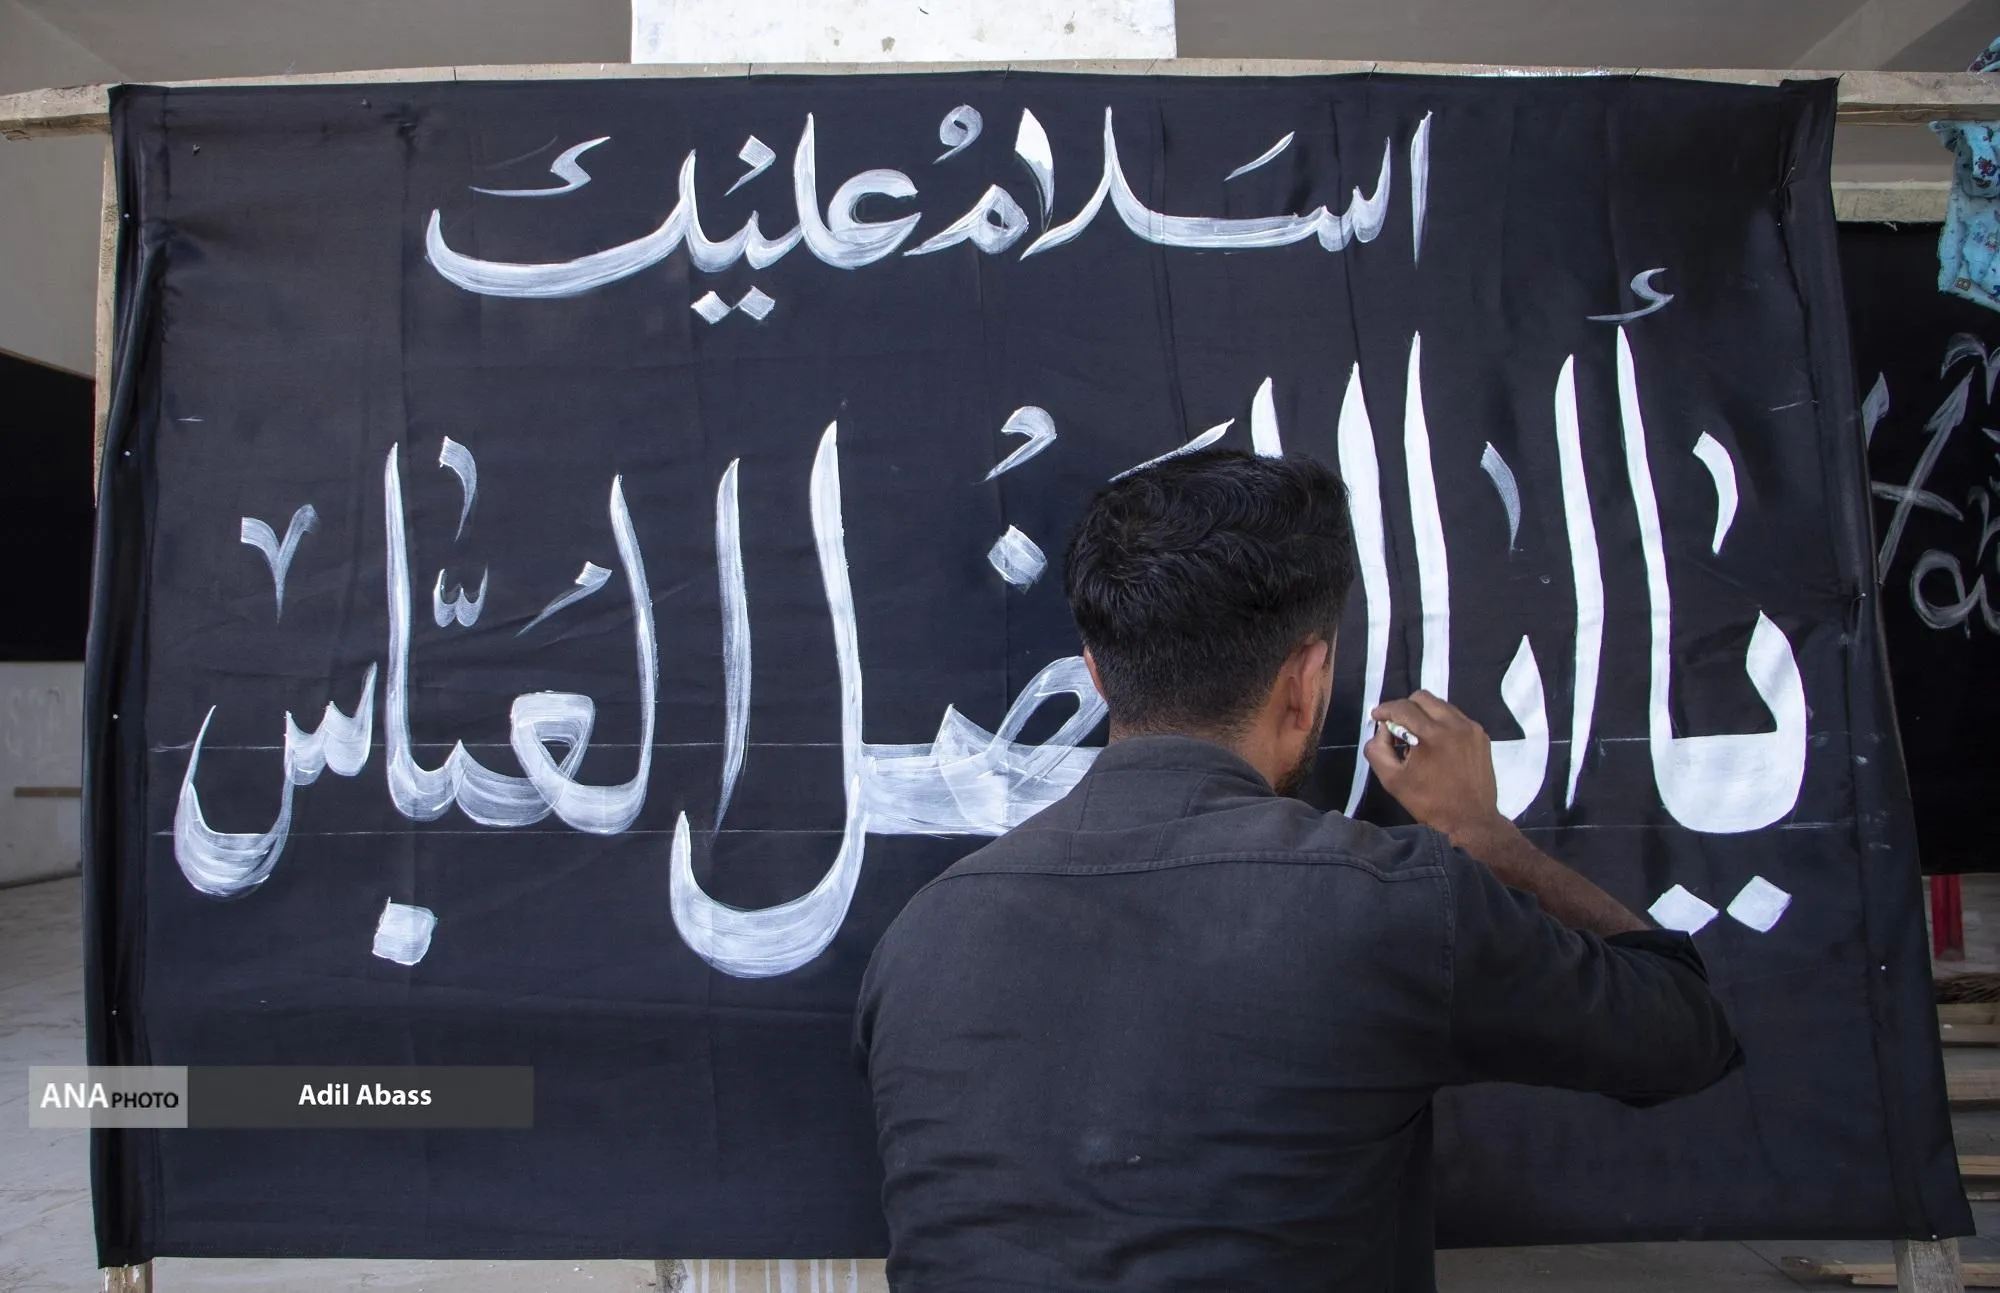 اسلامُ عليك
يا أبا الفضل العبّاس
ANA PHOTO Adil Abass